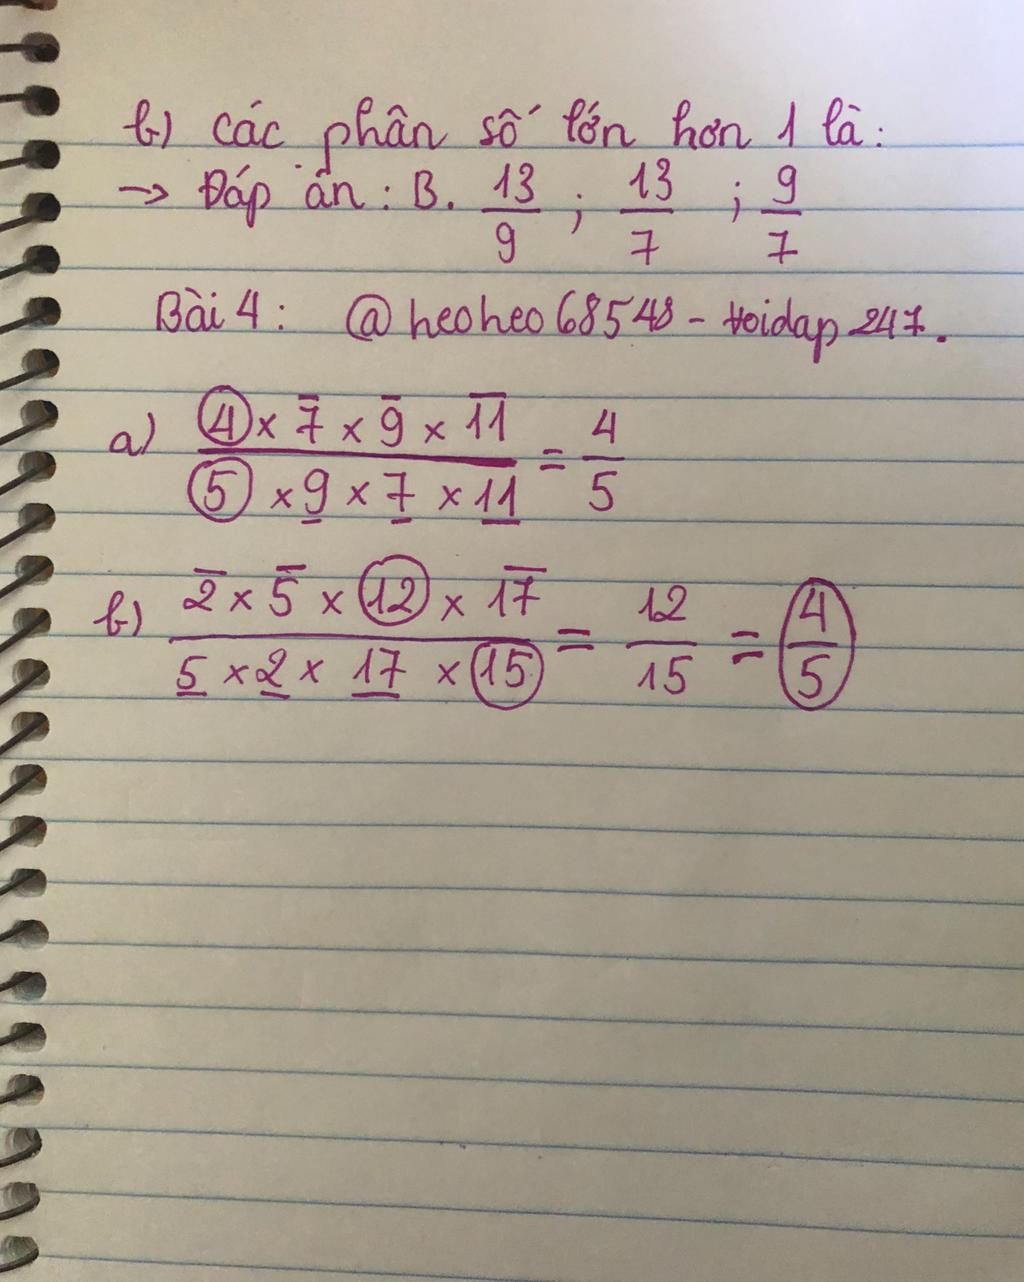 b) Các phân số lớn hơn 1 là:
→ Đáp án: B. 13/9 ; 13/7 ; 9/7
Bài 4: @heoheo68548 - hoidap247.
a) 4 × 7 × 9 × 11 / 5 × 9 × 7 × 11 = 4/5
b) 2 × 5 × 12 × 17 / 5 × 2 × 17 × 15 = 12/15 = 4/5